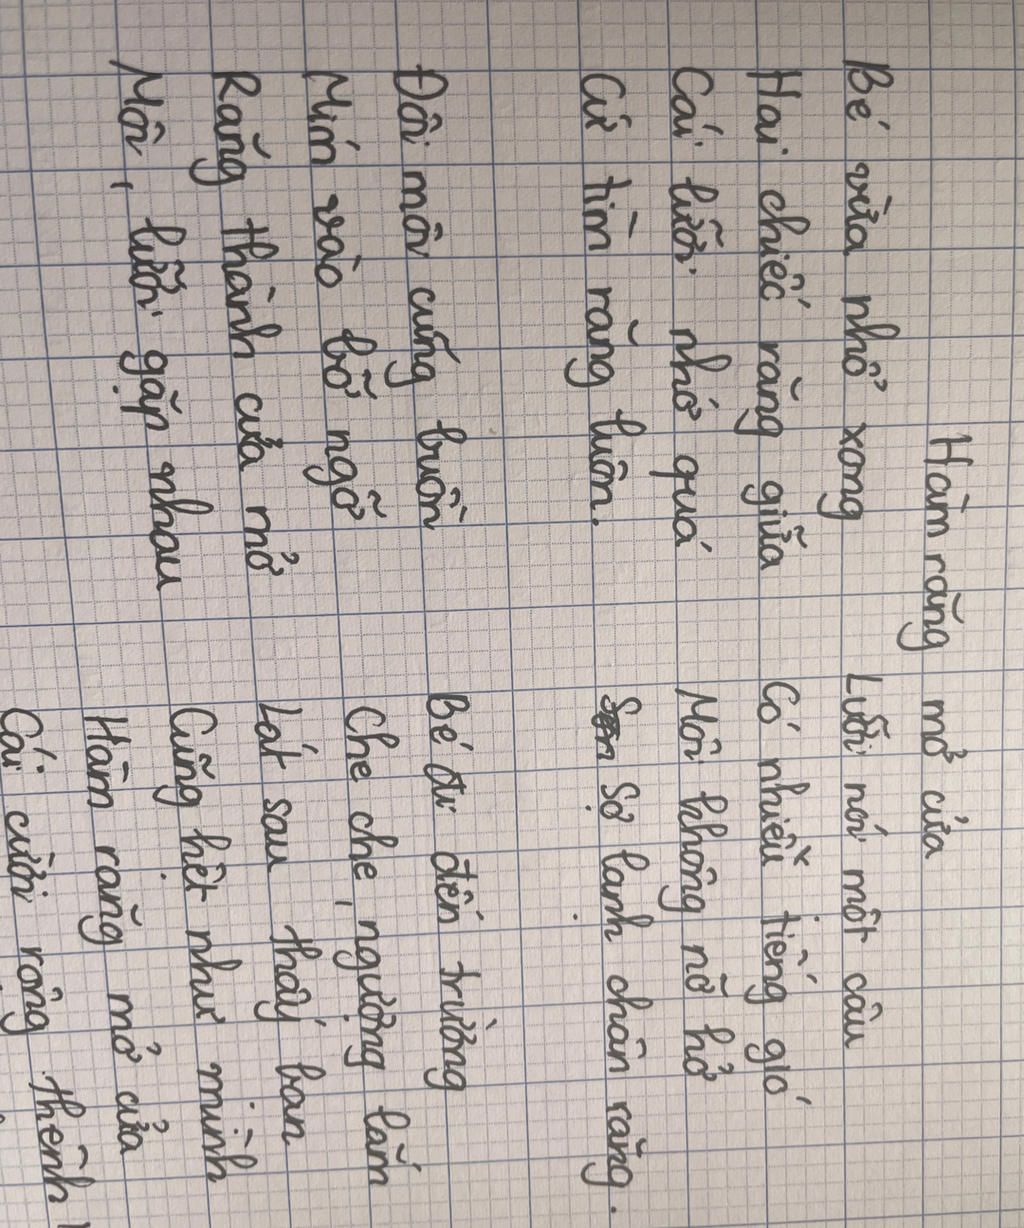 Hàm răng mở cửa
Bé vừa nhổ xong
Hai chiếc răng giữa
Cái lưỡi nhớ quá
Cứ tìm răng luôn.
Đôi môi cũng buồn
Mím vào bỡ ngỡ
Răng thành cửa mở
Môi, lưỡi gặp nhau
Lưỡi nói một câu
Có nhiều tiếng gió
Môi không nỡ hở
Sợ lạnh chân răng.
Bé đi đến trường
Che che, ngượng lắm
Lát sau thấy bạn
Cũng hệt như mình
Hàm răng mở cửa
Cái cười rộng thênh!